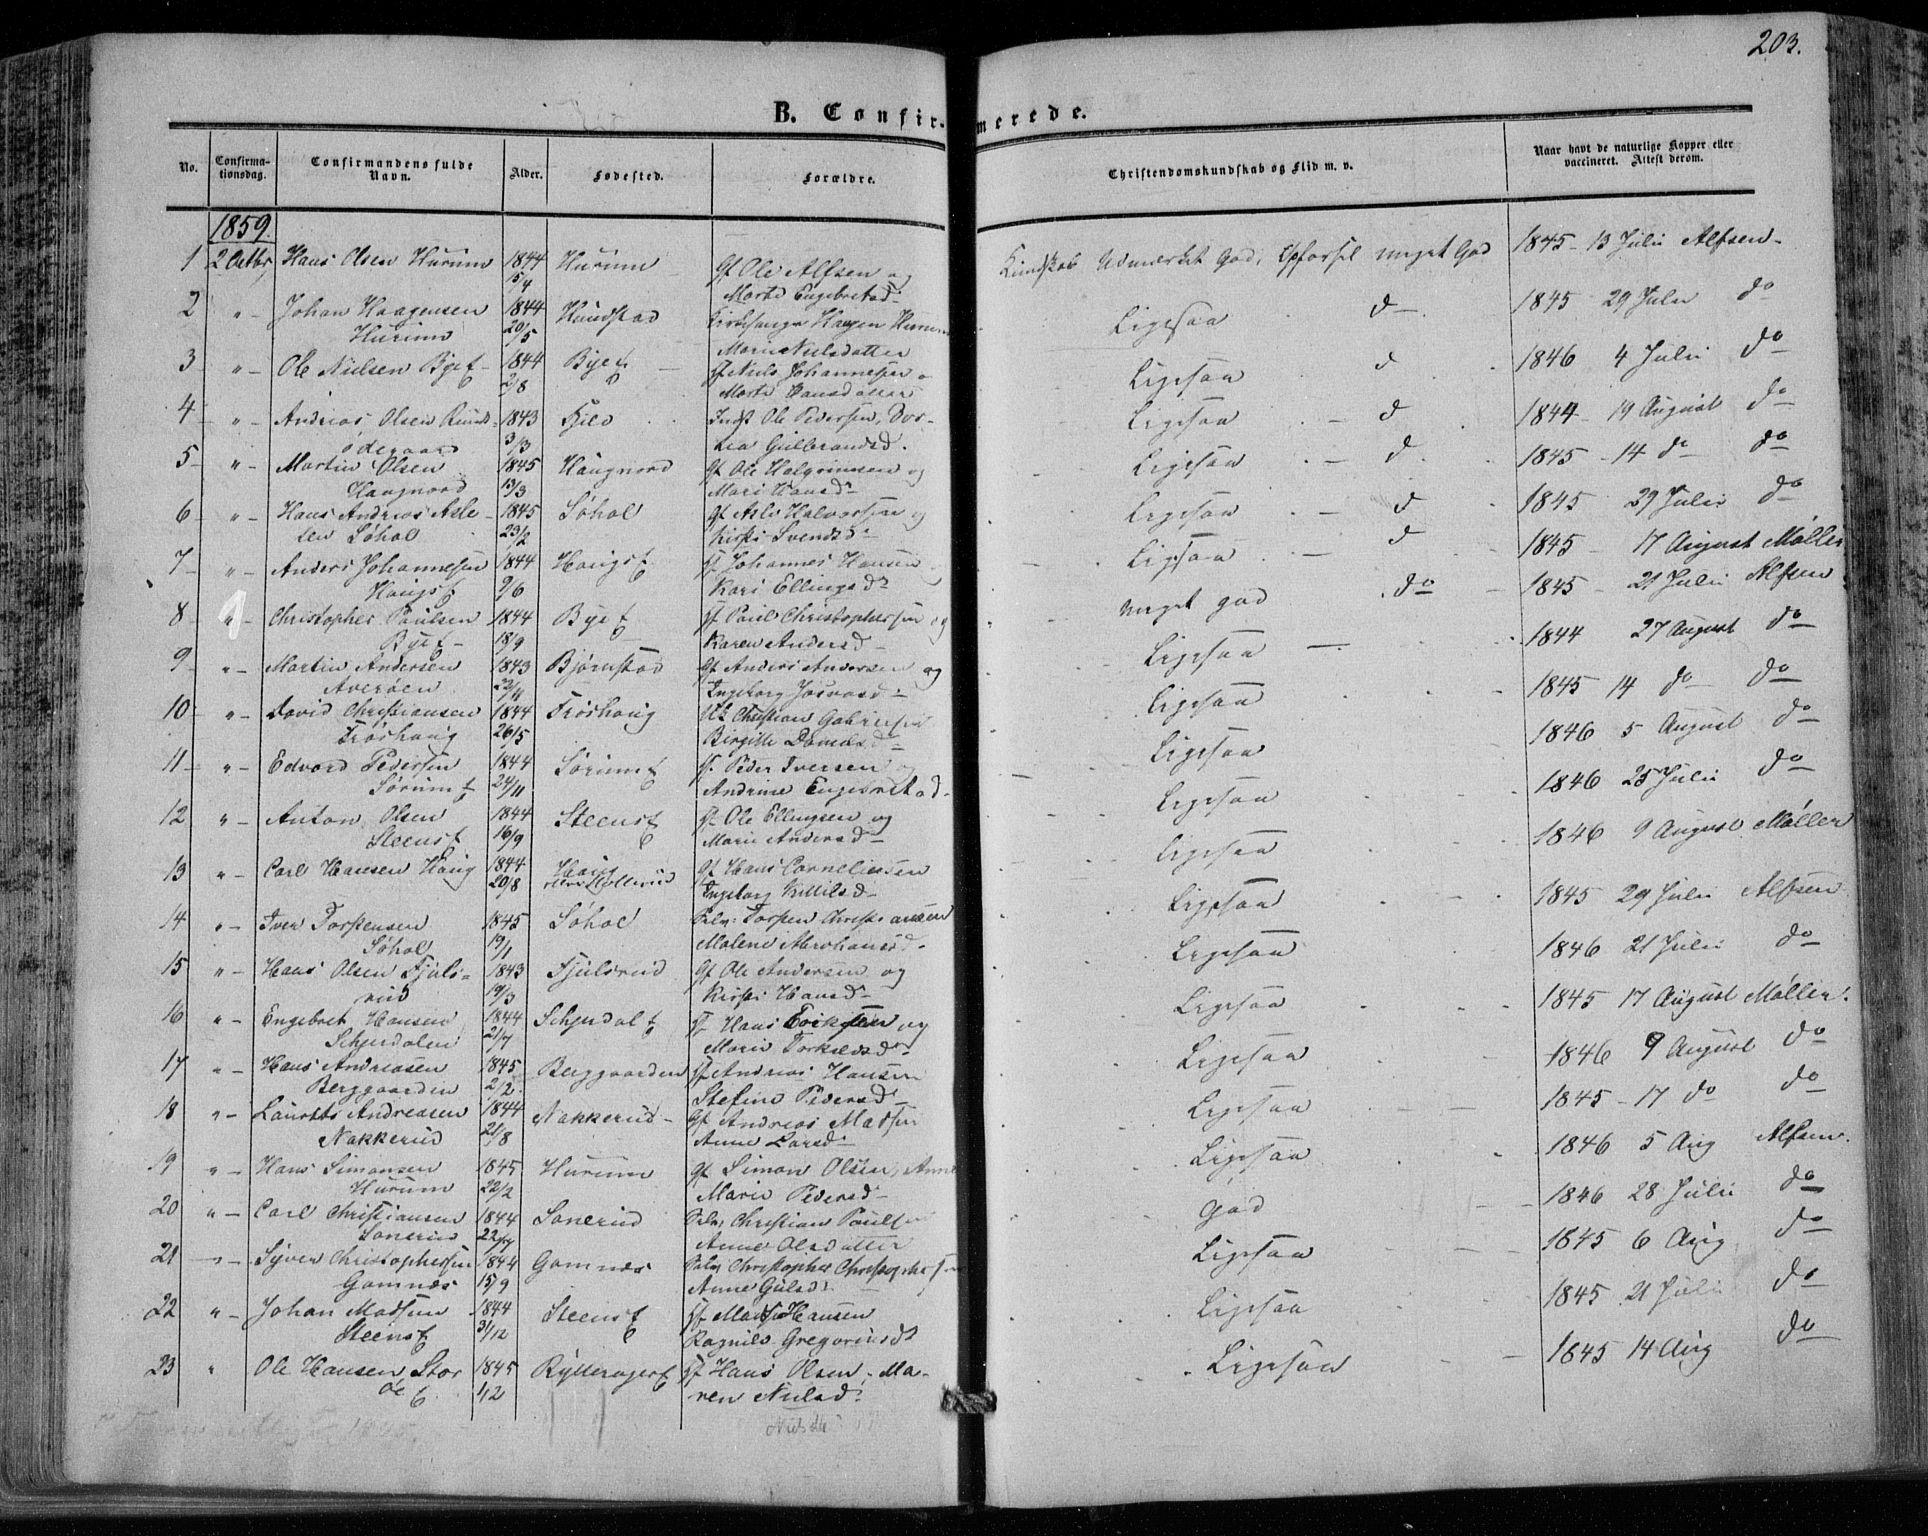 203.
B. Confirmerede.
No. Confirmationsdag. Confirmandens fulde Navn. Alder. Fødested. Forældre. Christendomskundskab og Flid m. v. Naar havt de naturlige Kopper eller vaccineret. Attest derom.
1859.
1 2 Octbr Hans Olsen Hurum 1844 Hurum Gf Ole Alfsen og Kundskab Udmærket God, Opførsel meget God 1845 - 13 Julii Alfsen
15/4 Marte Engebretsd:
2 " Johan Haagensen 1844 Hundstad Kirkesanger Haagen Hurum Ligesaa d 1845 29 Julii do
Hurum 20/5 Marie Nielsdatter
3 " Ole Nielsen Byef 1844 Byef Gf Niels Johannesen o Ligesaa d 1846 4 Julii do
2/8 Marte Hansdatter
4 " Andreas Olsen Rund- 1843 Fjeld Indst Ole Pedersen, Dor- Ligesaa d 1844 - 19 August do
ødegaard 3/3 tea Gulbrandsd.
5 " Martin Olsen 1845 Haugnord Gf Ole Halgrimsen og Ligesaa d 1845 - 14 do do
Haugnord 13/3 Mari Hansd
6 " Hans Andreas Asle- 1845 Søhol Gf Asle Halvorsen og Ligesaa d 1845 29 Julii do
sen Søhol 23/2 Kirsti Svendsd
7 " Anders Johannesen 1844 Haugsf Gf Johannes Hansen Ligesaa d 1845 17 August Møller
Haugsf 9/6 Kari Ellingsd
8 " Christopher Paulsen 1844 Byef Gf Paul Christophersen og meget god do 1845 21 Julii Alfsen
Byef 18/9 Karen Andersd
9 " Martin Andersen 1843 Bjørnstad Gf Anders Andersen og Ligesaa 1844 27 August do
Averøen 22/11 Ingeborg Josvasd
10 " David Christiansen 1844 Frøshaug Christian Gabrielsen Ligesaa 1845 14 do do
Frøshaug 26/5 Birgitte Danielsd
11 " Edvard Pedersen 1844 Sørumf Gf. Peder Iversen og Ligesaa 1846 5 August do
Sørumf 24/11 Andrine Engebretsd.
12 " Anton Olsen 1844 Steensf Gf Ole Ellingsen og Ligesaa 1846 25 Julii do
Steensf 16/9 Marie Andersd
13 " Carl Hansen Haug 1844 Haug Gf Hans Corneliussen Ligesaa 1846 9 August Møller
20/8 Ingeborg Killilsd
14 " Iver Torstensen 1845 Søhol Torsten Christiansen Ligesaa 1845 29 Julii Alfsen
Søhol 19/1 Malene Abrahamsd
15 " Hans Olsen Fjuls- 1843 Fjulsrud Gf Ole Andersen og Ligesaa 1846 21 Julii do
rud 19/3 Kirsti Hansd
16 " Engebret Hansen 1844 Schjerdalf Gf Hans Eriksen og Ligesaa 1845 17 August Møller.
Schjerdalen 21/7 Marie Torkildsd
17 " Hans Andreasen 1845 Berggaarden Gf Andreas Hansen Ligesaa 1846 9 August do
Berggaarden 2/2 Stefine Pedersd
18 " Laurits Andreasen 1844 Nakkerud Gf Andreas Madsen Ligesaa 1845 - 17 do do
Nakkerud 21/8 Anne Larsd
19 " Hans Simonsen 1845 Hurum Gf Simon Olsen, Anne Ligesaa 1846 5 Aug Alfsen.
Hurum 22/2 Marie Pedersd
20 " Carl Christiansen 1844 Sonerud Christian Paulsen God 1846 28 Julii do
Sonerud 22/7 Anne Olsdatter
21 " Syver Christophersen 1844 Gomnæs Christopher Christophersen Ligesaa 1845 6 Aug do
Gomnæs 15/9 Anne Gulsd:
22 " Johan Madsen 1844 Steensf Gf Mads Hansen Ligesaa 1845 21 Julii do
Steensf 31/12 Ragnild Gregoriusdt
23 " Ole Hansen Stor 1845 Rytteragerf Gf Hans Olsen, Ma- Ligesaa 1845 14 Aug do
øe 4/2 ren Nielsd:
Nielsdt